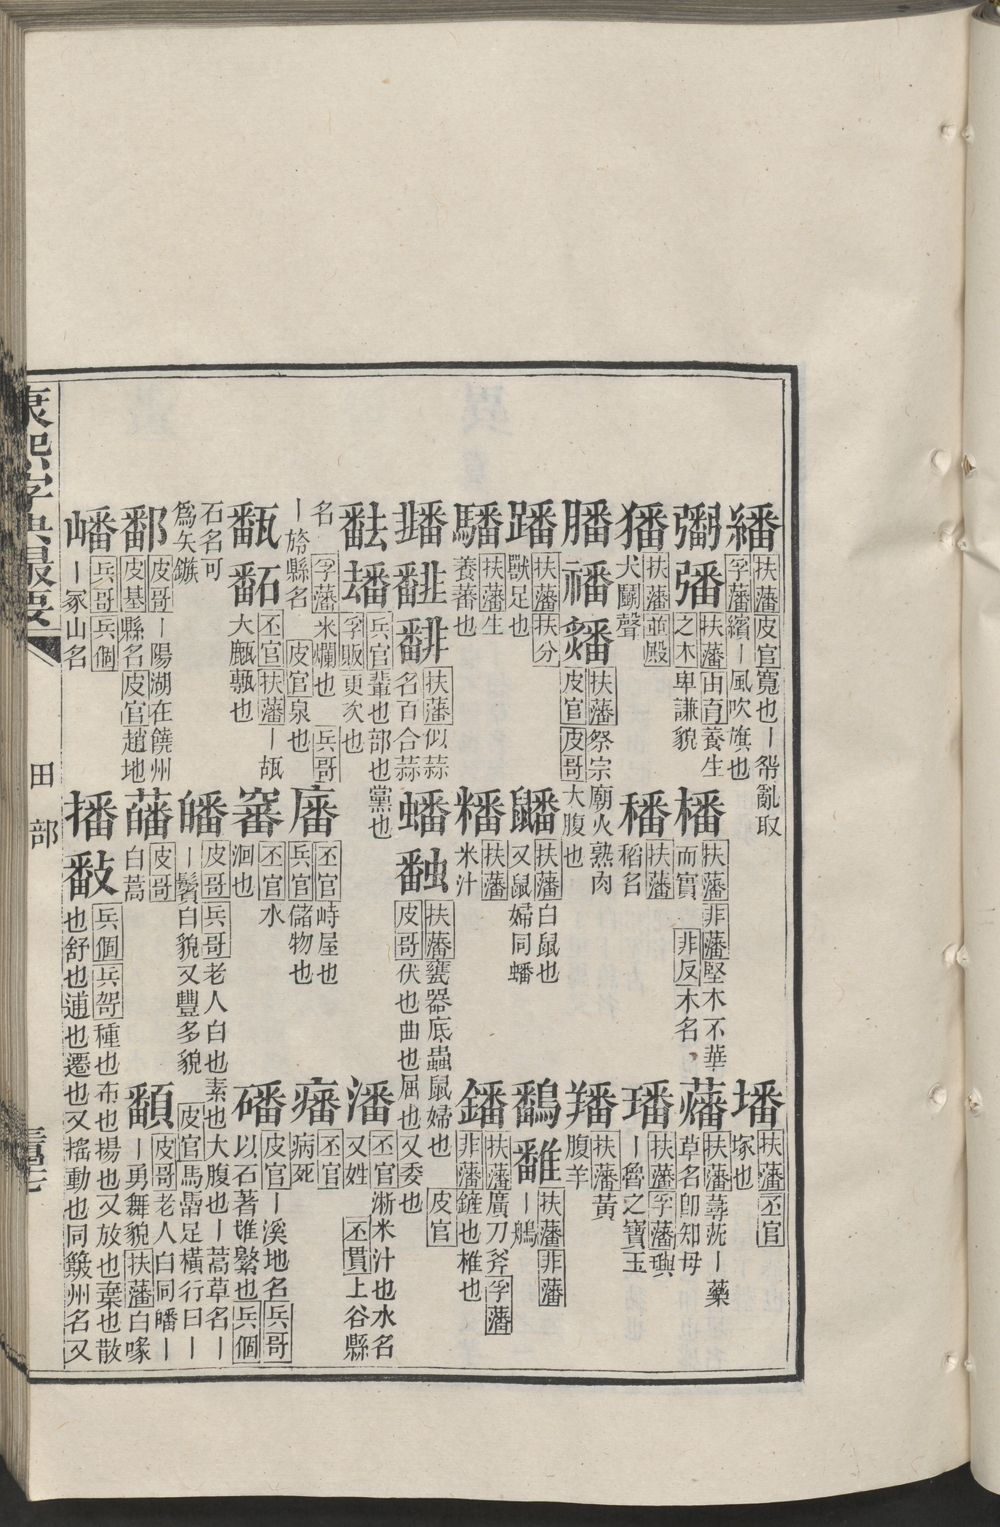 繙 扶藩 皮官 寬也｜帤亂取
孚藩 繽｜風吹旗也
墦 扶藩 丕官
塚也
彌 扶藩 由育 養生
之木卑謙貌
橎 扶藩 非藩 堅木不華
而實 非反 木名
蕃 扶藩 蕁菭｜藥
草名卽知母
獦 扶藩 並殿
犬鬭聲
䊩 扶藩
稻名
璠 扶藩 孚藩 璵
｜魯之寶玉
膰 𥛮 𤑹 扶藩 祭宗廟火熟肉
皮官 皮哥 大腹也
羳 扶藩 黃
腹羊
蹯 扶藩 扶分
獸足也
鼶 扶藩 白鼠也
又鼠婦同蟠
鷭 扶藩 非藩
｜鶂
䮳 扶藩 生
養蕃也
𥼞 扶藩
米汁
鐇 扶藩 廣刀斧 孚藩
非藩 鏟也椎也
扶藩 似蒜
名百合蒜
蟠 扶藩 甕器底蟲鼠婦也 皮官
皮哥 伏也曲也屈也又委也
兵官 輩也部也黨也
孚販 更次也
名 孚藩 米爛也 兵哥
｜旍縣名 皮官 泉也
潘 丕官 淅米汁也水名
又姓 丕貫 上谷縣
㢖 丕官 峙屋也
兵官 儲物也
𤺏 丕官
病死
丕官 扶藩 ｜瓳
大甗瓢也
石名可
爲矢鏃
審 丕官 水
洄也
磻 皮官 ｜溪地名 兵哥
以石著堆繁也 兵個
鄱 皮哥 ｜陽湖在饒州
皮基 縣名 皮官 趙地
皤 皮哥 兵哥 老人白也素也大腹也｜蒿草名｜
｜鬢白貌又豐多貌 皮官 馬罾足橫行曰｜
蕃 皮哥
白蒿
顮 皮哥 老人白同皤｜
｜勇舞貌 扶藩 白喙
嶓 兵哥 兵個
｜冢山名
播 兵個 兵哿 種也布也揚也又放也棄也散
也舒也逋也遷也又搖動也同簸州名又
康熙字典最要
田部